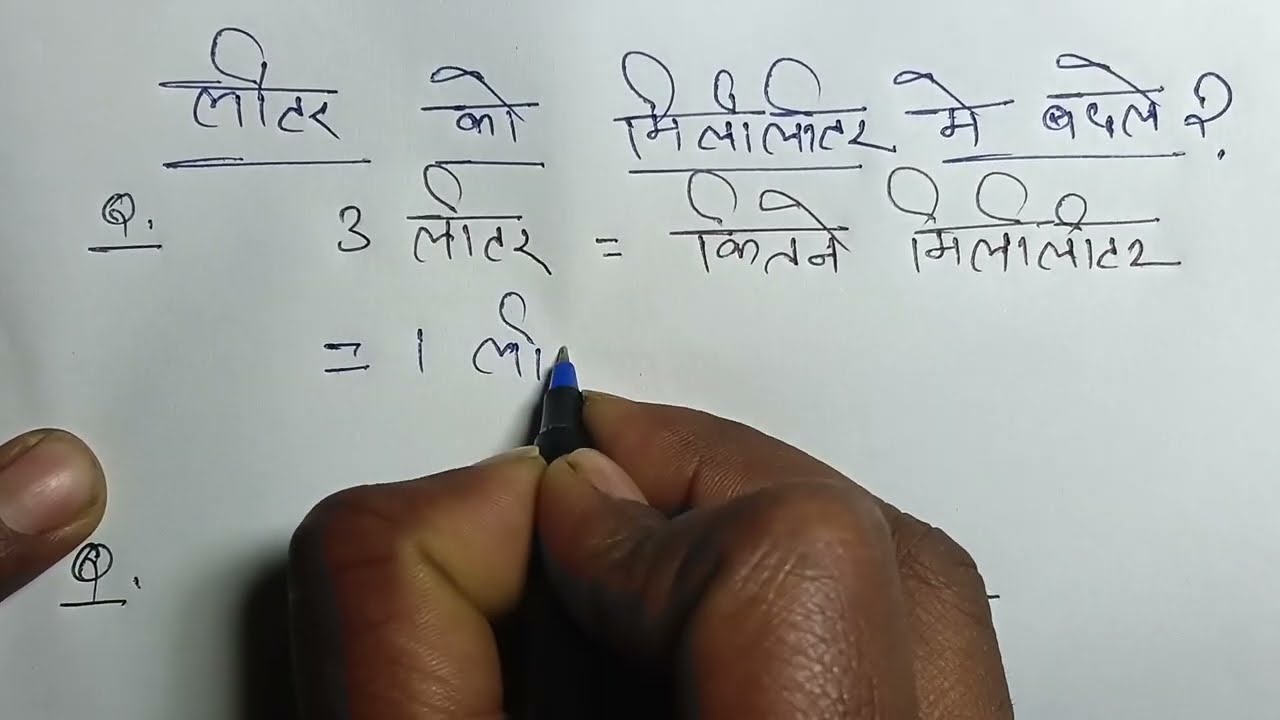 लीटर को मिलीलीटर मे बदले ?
Q. 3 लीटर = कितने मिलीलीटर
= 1 ली
Q.